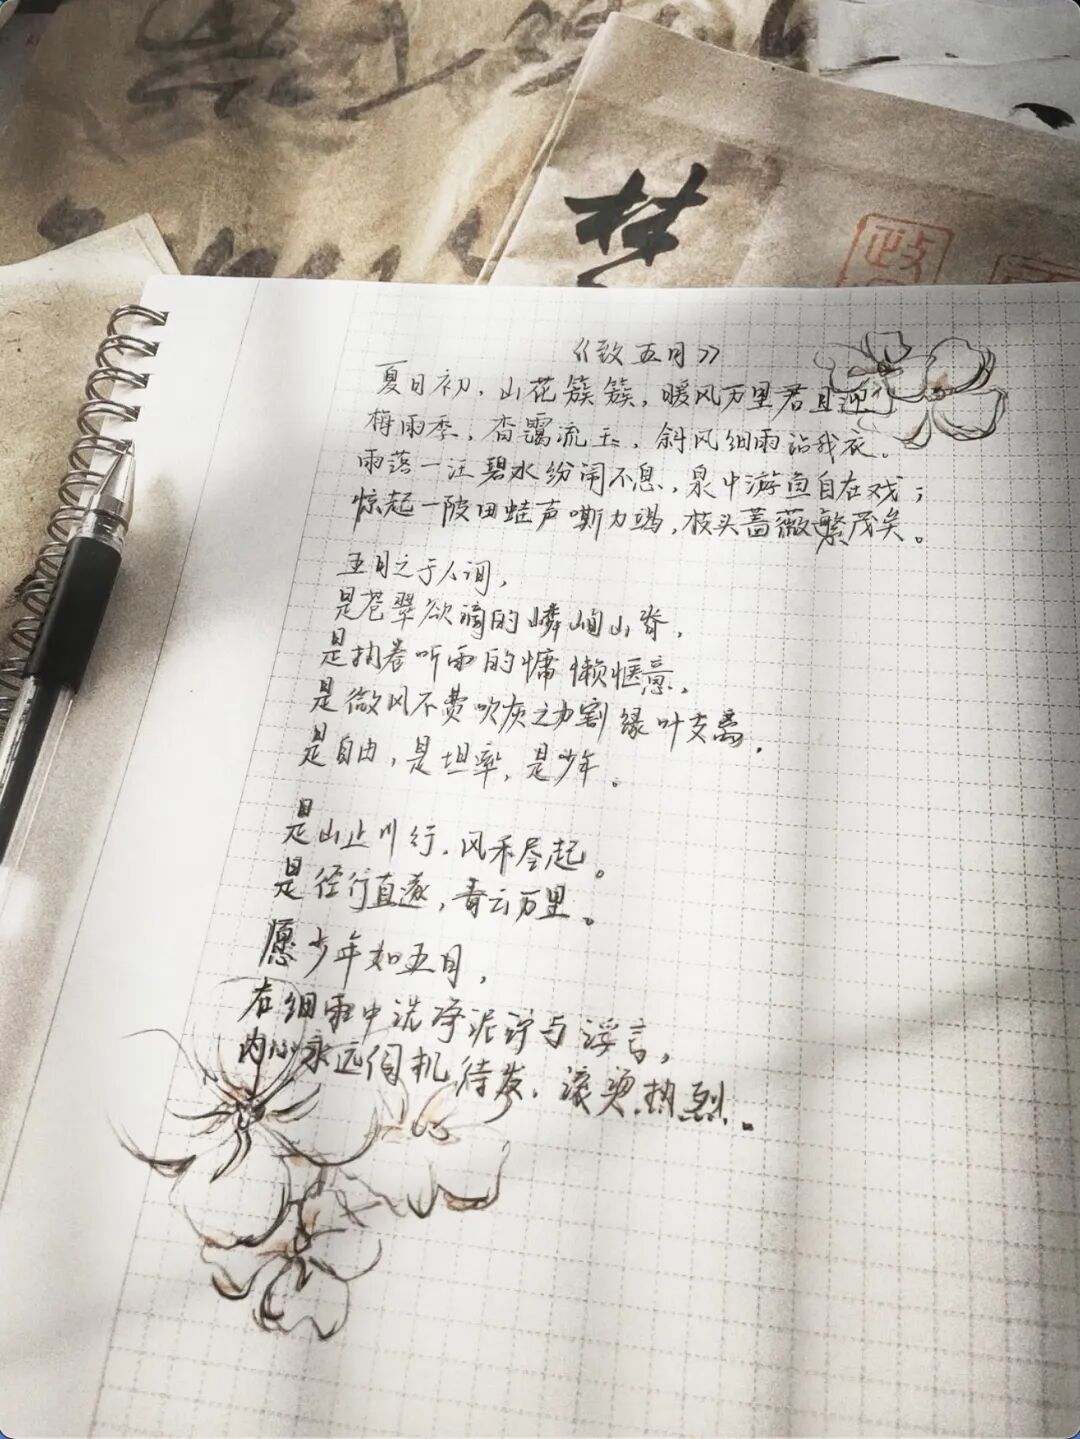 梦
政
《致五月》
夏日初，山花簇簇，暖风万里君且迎
梅雨季，杳霭流玉，斜风细雨沾我衣。
雨落一汪碧水纷闹不息，泉中游鱼自在戏；
惊起一陂田蛙声嘶力竭，枝头蔷薇繁茂矣。
五月之于人间，
是苍翠欲滴的嶙峋山脊，
是执卷听雨的慵懒惬意，
是微风不费吹灰之力割缘叶支离，
是自由，是坦率，是少年。
是山止川行，风禾尽起。
是径行直遂，青云万里。
愿少年如五月，
在细雨中洗净泥泞与浮言，
内心永远伺机待发，滚烫热烈。